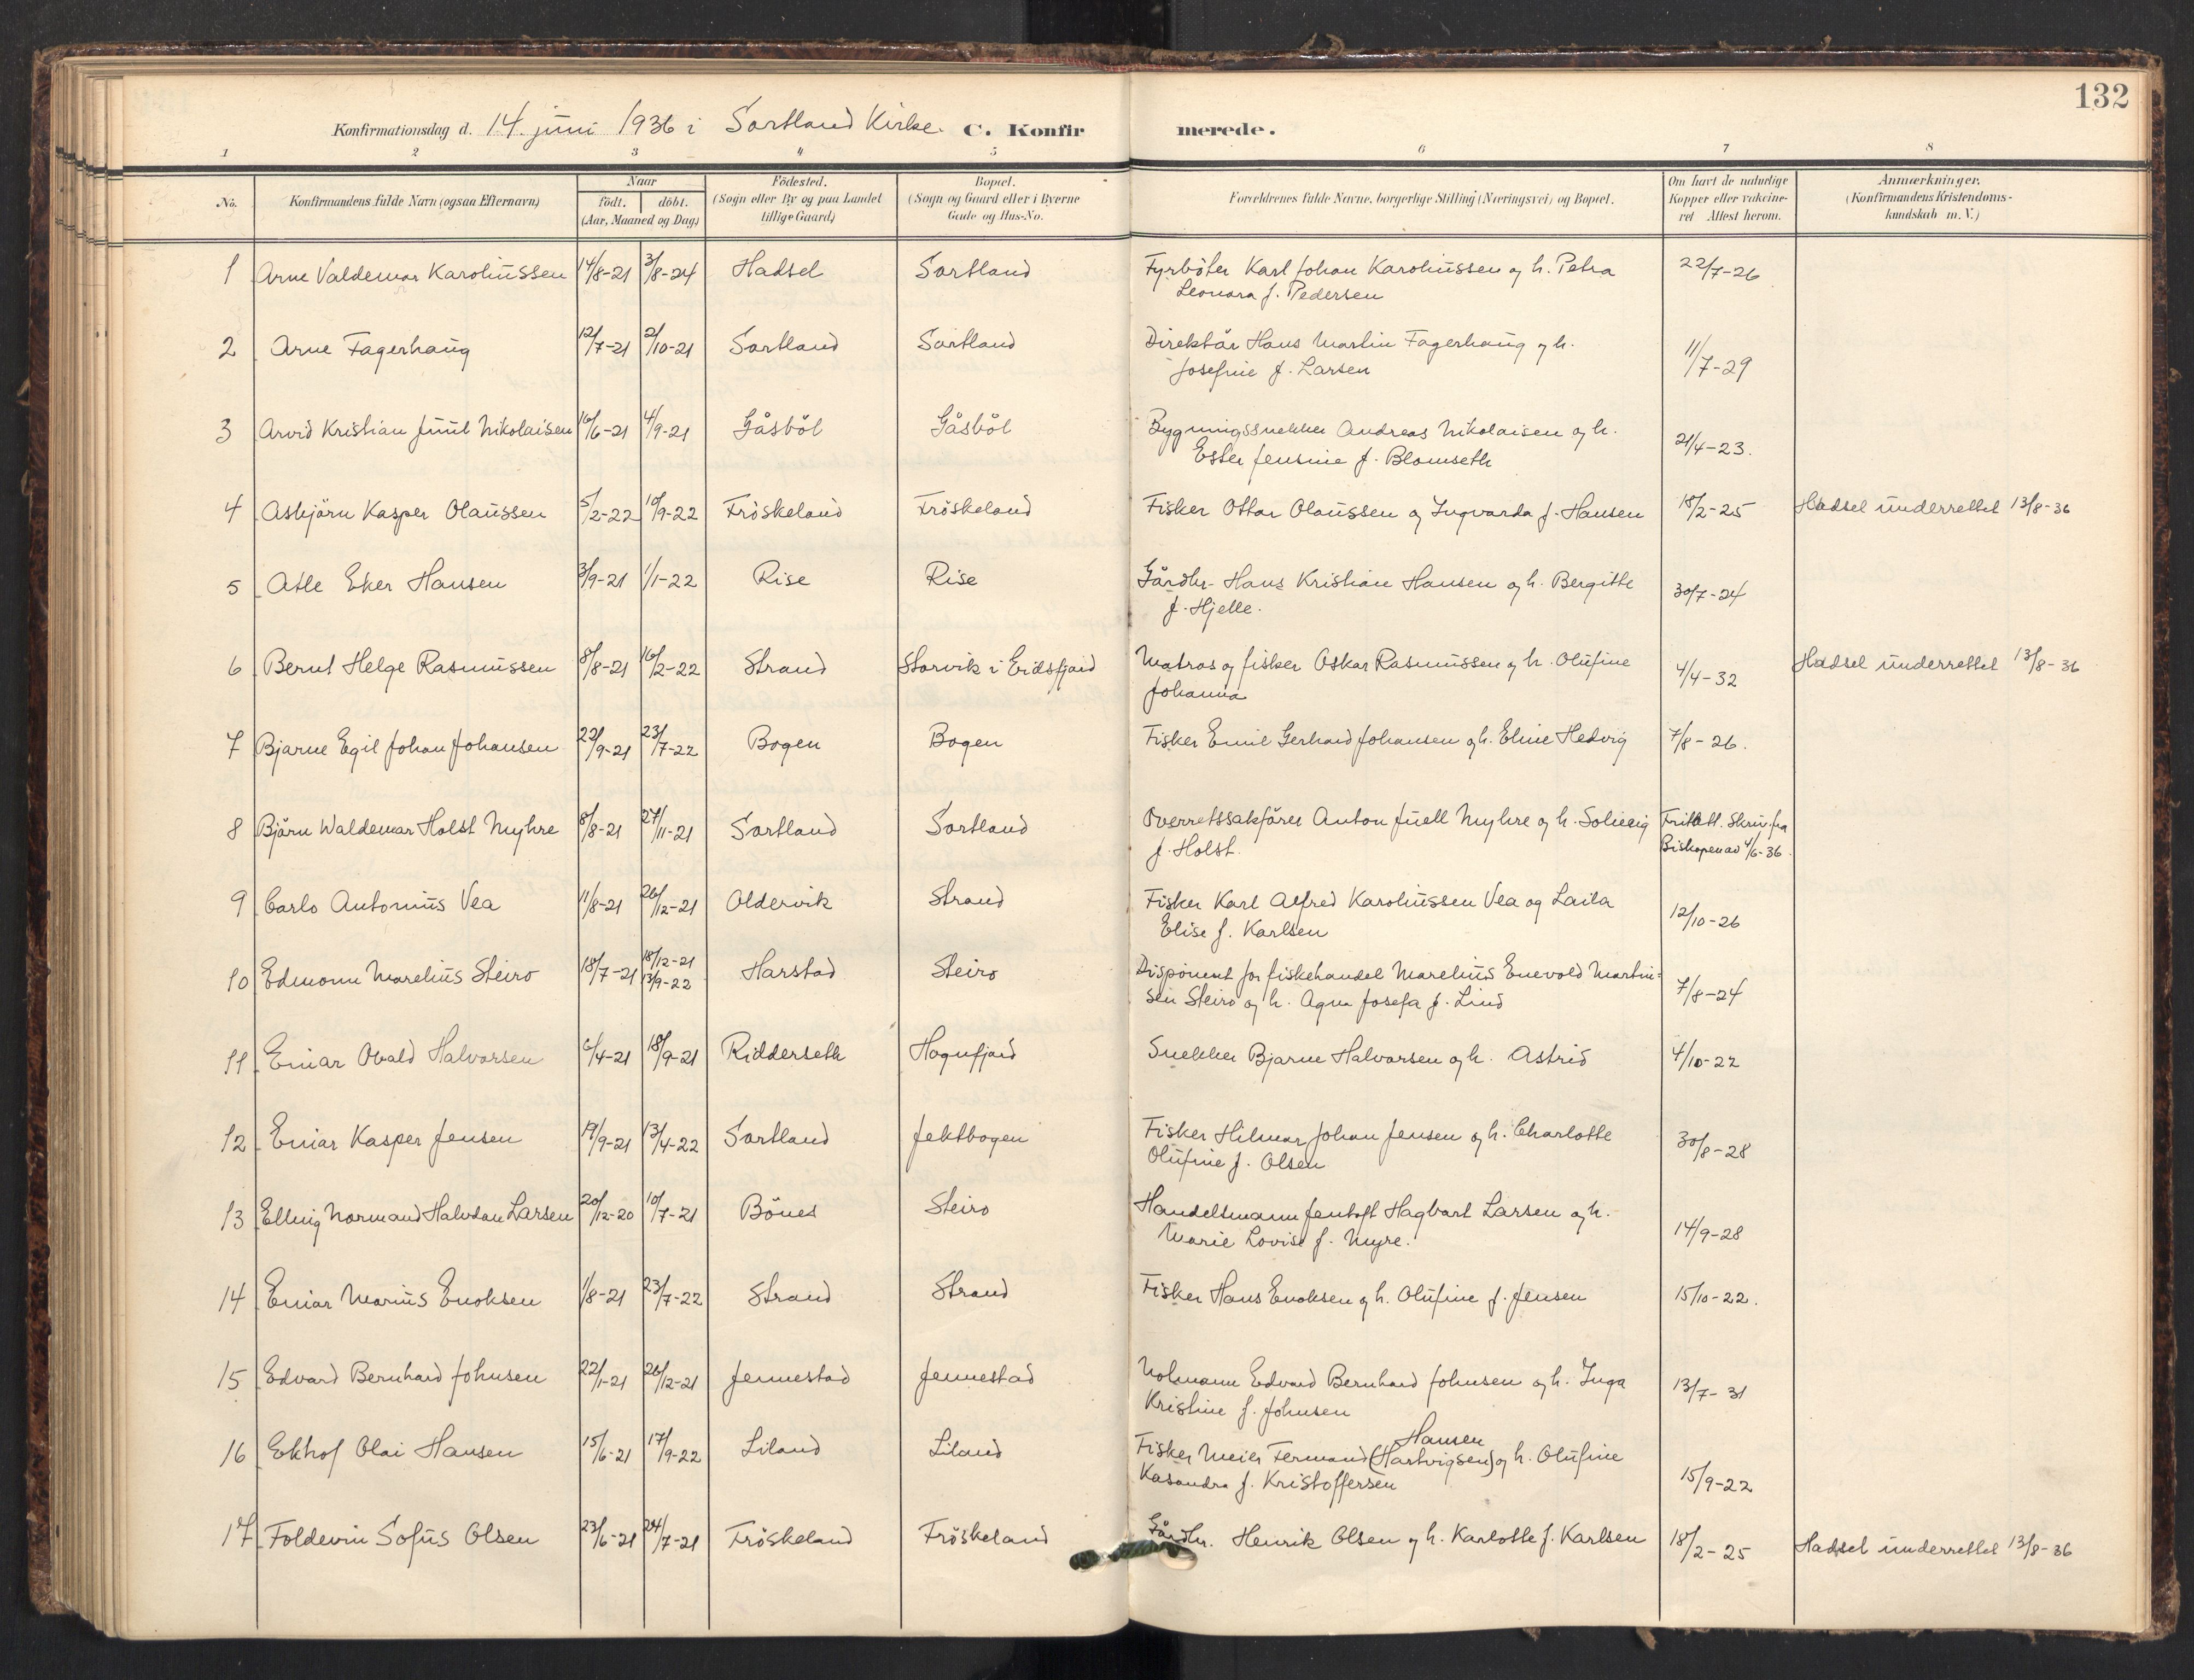 132
Konfirmationsdag d. 14. juni 1936 i Sortland Kirke. C. Konfirmerede.
1 2 3 4 5 6 7 8
No. Konfirmandens fulde Navn (ogsaa Efternavn) Naar födt. döbt. (Aar, Maaned og Dag) Födested. (Sogn eller By og paa Landet tillige Gaard) Bopæl. (Sogn og Gaard eller i Byerne Gade og Hus-No. Forældrenes fulde Navne, borgerlige Stilling (Næringsvei) og Bopæl. Om havt de naturlige Kopper eller vakcineret Attest herom. Anmærkninger. (Konfirmandens Kristendomskundskab m. V.)
1 Arne Valdemar Karoliussen 14/8-21 3/8-24 Hadsel Sortland Fyrböter Karl Johan Karoliussen og h. Petra 22/7-26
Leonora f. Pedersen
2 Arne Fagerhaug 12/7-21 2/10-21 Sortland Sortland Direktör Hans Martin Fagerhaug og h. 11/7-29
Josefine f. Larsen
3 Arvid Kristian Juul Nikolaisen 16/6-21 4/9-21 Gåsböl Gåsböl Bygningssnekker Andreas Nikolaisen og h. 21/4-23.
Ester Jensine f. Blomseth
4 Asbjörn Kasper Olaussen 5/2-22 10/9-22 Fröskeland Fröskeland Fisker Ottar Olaussen og Ingvarda f. Hansen 18/2-25 Hadsel underrettet 13/8-36
5 Atle Eker Hansen 3/9-21 1/1-22 Rise Rise Gårdbr. Hans Kristian Hansen og h. Bergitte 30/7-24
f. Hjelle.
6 Bernt Helge Rasmussen 8/8-21 16/2-22 Strand Storvik i Eidsfjord Matros og fisker Oskar Rasmussen og h. Olufine 4/4-32 Hadsel underrettet 13/8-36
Johanna
7 Bjarne Egil Johan Johansen 22/9-21 23/7-22 Bogen Bogen Fisker Emil Gerhard Johansen og h. Eline Hedvig 7/8-26.
8 Björn Waldemar Holst Myhre 8/8-21 27/11-21 Sortland Sortland Overretssakförer Anton Juell Myhre og h. Solveig Fritatt. Skriv. fra
f. Holst. Biskopen av 4/6-36.
9 Carlo Antonius Vea 11/8-21 26/12-21 Oldervik Strand Fisker Karl Alfred Karoliussen Vea og Laila 12/10-26
Elise f. Karlsen
10 Edmonn Marelius Steiro 18/7-21 18/12-21 13/9-22 Harstad Steiro Disponent for fiskehandel Marelius Enevold Martin- 7/8-24
sen Steiro og h. Agna Josefa f. Lind
11 Einar Obald Halvorsen 6/4-21 18/9-21 Ridderseth Hognfjord Snekker Bjarne Halvorsen og h. Astrid 4/10-22
12 Einar Kasper Jensen 19/9-21 13/4-22 Sortland Jektbogen Fisker Hilmar Johan Jensen og h. Charlotte 30/8-28
Olufine f. Olsen
13 Elling Normand Halvdan Larsen 20/12-20 10/7-21 Bönes Steiro Handelsmann Jentoft Hagbart Larsen og h. 14/9-28
Marie Lovise f. Myre.
14 Einar Marius Enoksen 1/8-21 23/7-22 Strand Strand Fisker Hans Enoksen og h. Olufine f. Jensen 15/10-22.
15 Edvard Bernhard Johnsen 22/1-21 26/12-21 Jennestad Jennestad Edvard Bernhard Johnsen og h. Inga 13/7-31
Kristine f. Johnsen
Hansen
16 Ekhof Olai Hansen 15/6-21 17/9-22 Liland Liland Fisker Meier Fermand (Hartvigsen) og h. Olufine 15/9-22
Kasandra f. Kristoffersen
17 Foldevin Sofus Olsen 23/6-21 24/7-21 Fröskeland Fröskeland Gårdbr. Henrik Olsen og h. Karlotte f. Karlsen 18/2-25 Hadsel underrettet 13/8-36